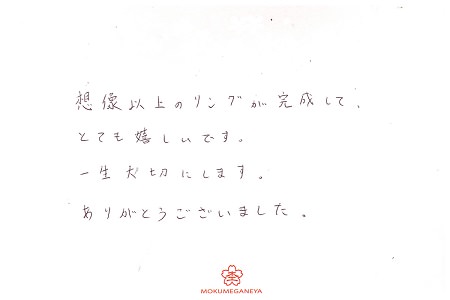 想像以上のリングが完成して、
とても嬉しいです。
一生大切にします。
ありがとうございました。
MOKUMEGANEYA